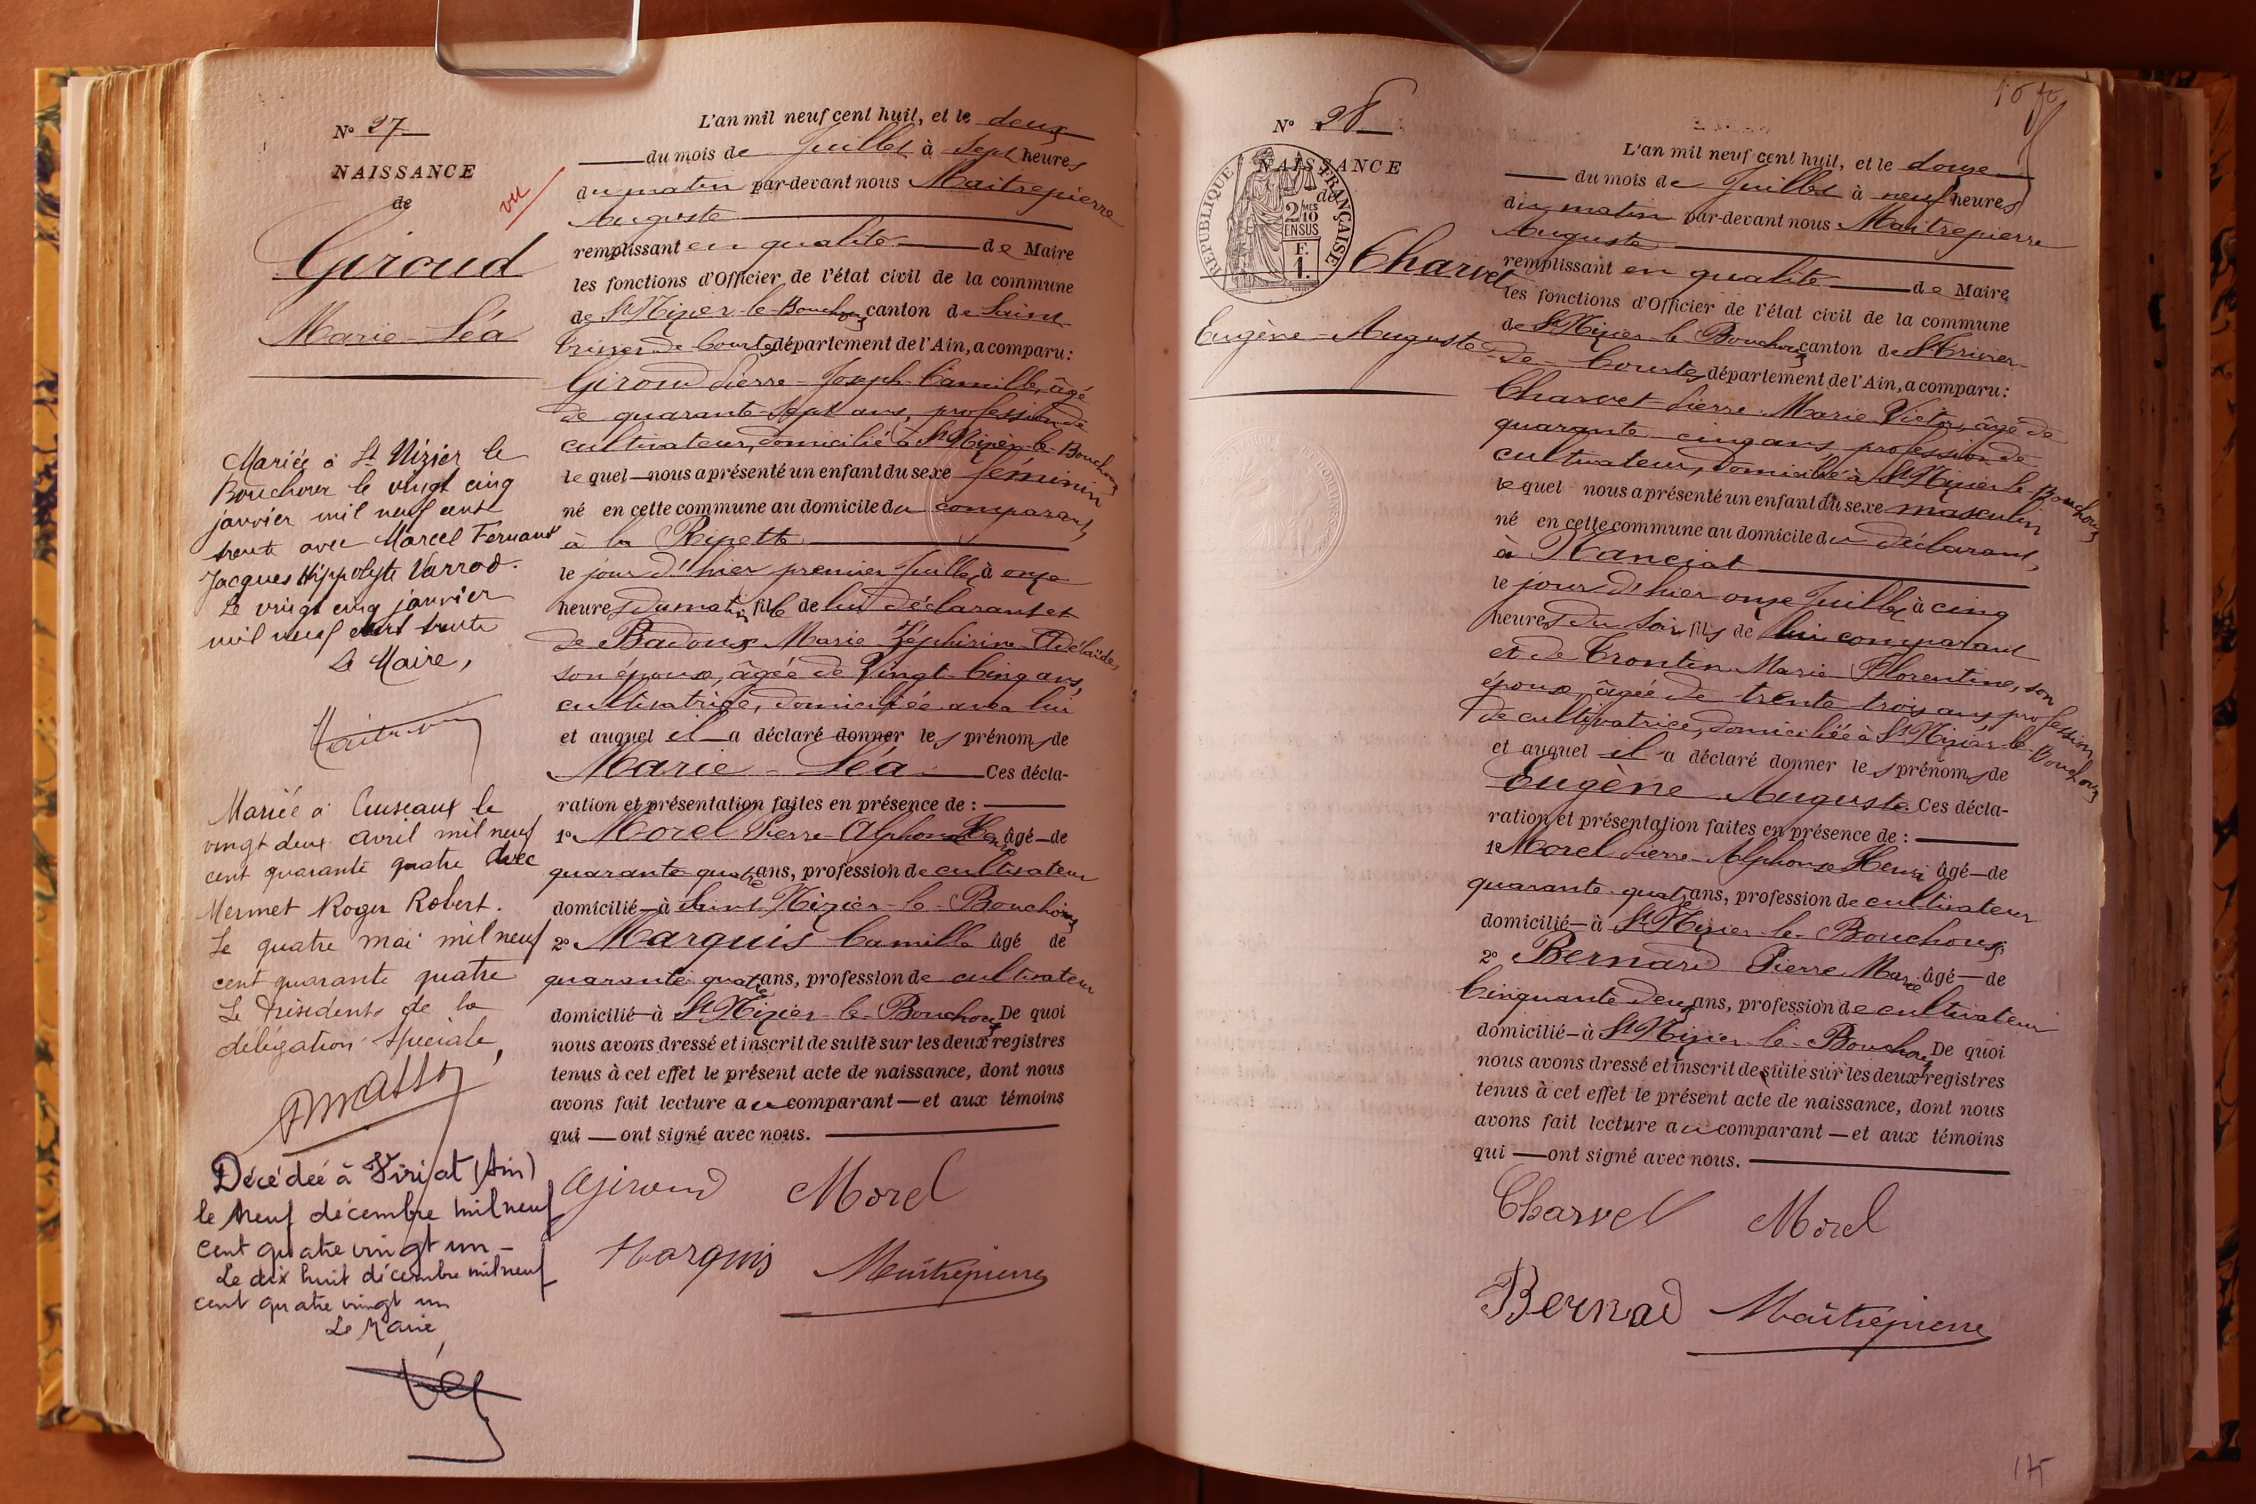 N° 27
NAISSANCE
de
Giroud
Marie-Léa
vu
Mariée à St Nizier le
Bouchoux le vingt cinq
janvier mil neuf cent
trente avec Marcel Fernand
Jacques Hippolyte Varrod.
Le vingt cinq janvier
mil neuf cent trente
Le Maire,
Mariée à Cuiseaux le
vingt deux avril mil neuf
cent quarante quatre avec
Mermet Roger Robert.
Le quatre mai mil neuf
cent quarante quatre
Le Président de la
délégation spéciale,
Décédée à Viriat (Ain)
le neuf décembre mil neuf
cent quatre vingt un -
Le dix huit décembre mil neuf
cent quatre vingt un
Le Maire
L'an mil neuf cent huit, et le deux
du mois de Juillet à sept heures
du matin par-devant nous Maitrepierre
Auguste
remplissant en qualité de Maire
les fonctions d'Officier de l'état civil de la commune
de St Nizier-le-Bouchoux canton de Saint-
Trivier-de-Courtes département de l'Ain, a comparu:
Giroud Pierre-Joseph-Camille, âgé
de quarante-sept ans, profession de
cultivateur, domicilié à St Nizier-le-Bouchoux
lequel nous a présenté un enfant du sexe féminin
né en cette commune au domicile du comparant,
à la Ripette
le jour d'hier premier Juillet à onze
heures du matin, fille de lui déclarant et
de Badoux Marie Zéphirine Adélaïde,
son épouse, âgée de Vingt-Cinq ans,
cultivatrice, domiciliée avec lui
et auquel il a déclaré donner les prénoms de
Marie-Léa Ces décla-
ration et présentation faites en présence de :
1° Morel Pierre-Alphonse Henri âgé de
quarante quatre ans, profession de cultivateur
domicilié à Saint Nizier-le-Bouchoux
2° Marquis Camille âgé de
quarante quatre ans, profession de cultivateur
domicilié à St Nizier-le-Bouchoux De quoi
nous avons dressé et inscrit de suite sur les deux registres
tenus à cet effet le présent acte de naissance, dont nous
avons fait lecture au comparant et aux témoins
qui ont signé avec nous.
Giroud Morel
Marquis Maitrepierre
N° 28
NAISSANCE
de
RÉPUBLIQUE FRANÇAISE
2 MES
10
EN SUS
F.
1.
Charvet
Eugène-Auguste
L'an mil neuf cent huit, et le douze
du mois de Juillet à neuf heures
du matin par-devant nous Maitrepierre
Auguste
remplissant en qualité de Maire
les fonctions d'Officier de l'état civil de la commune
de St Nizier-le-Bouchoux canton de St Trivier-
de-Courtes département de l'Ain, a comparu:
Charvet Pierre-Marie Victor, âgé de
quarante-cinq ans, profession de
cultivateur, domicilié à St Nizier-le-Bouchoux
lequel nous a présenté un enfant du sexe masculin
né en cette commune au domicile du déclarant,
à Ranciat
le jour d'hier onze Juillet à cinq
heures du soir, fils de lui comparant
et de Trontin Marie-Florentine, son
épouse, âgée de trente trois ans, profession
de cultivatrice, domiciliée à St Nizier-le-Bouchoux
et auquel il a déclaré donner les prénoms de
Eugène Auguste. Ces décla-
ration et présentation faites en présence de :
1° Morel Pierre-Alphonse Henri âgé de
quarante-quatre ans, profession de cultivateur
domicilié à St Nizier-le-Bouchoux
2° Bernard Pierre Marie âgé de
Cinquante-deux ans, profession de cultivateur
domicilié à St Nizier-le-Bouchoux De quoi
nous avons dressé et inscrit de suite sur les deux registres
tenus à cet effet le présent acte de naissance, dont nous
avons fait lecture au comparant et aux témoins
qui ont signé avec nous.
Charvet Morel
Bernad Maitrepierre
175